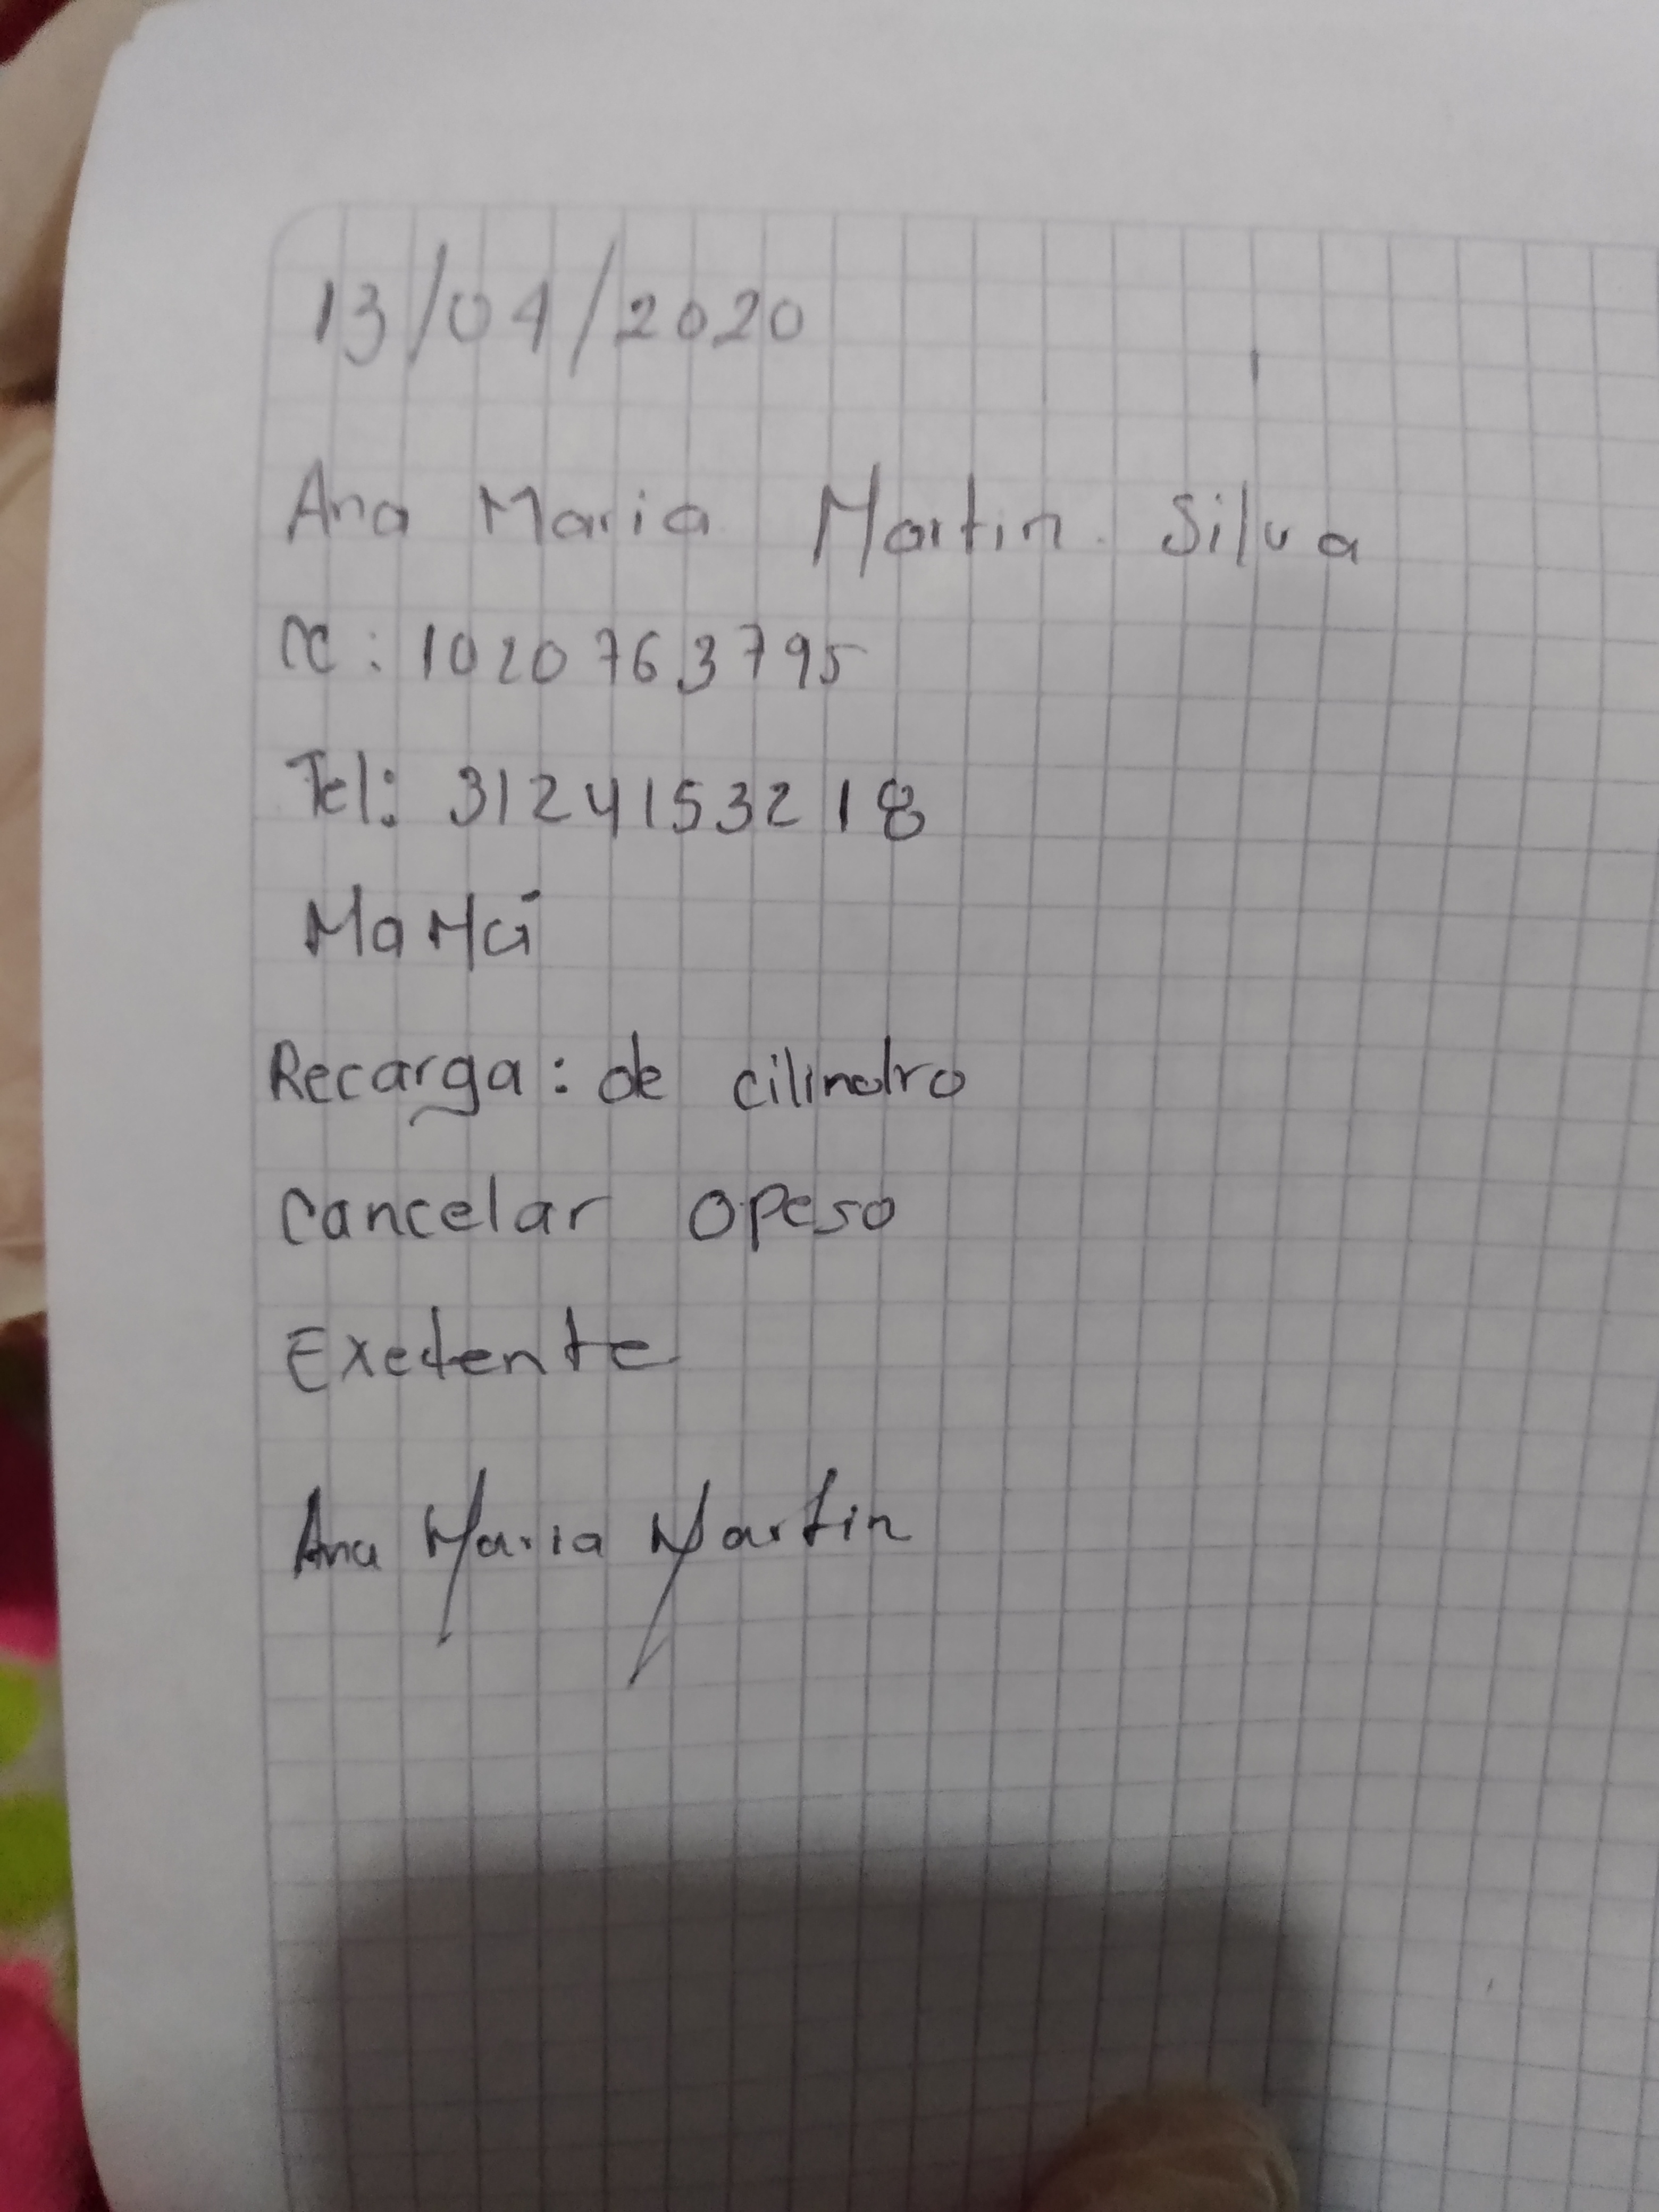 13/04/2020
Ana Maria Martin Silva
CC: 1020763795
Tel: 3124153218
MaMá
Recarga: de cilindro
Cancelar 0peso
Exedente
Ana Maria Martin